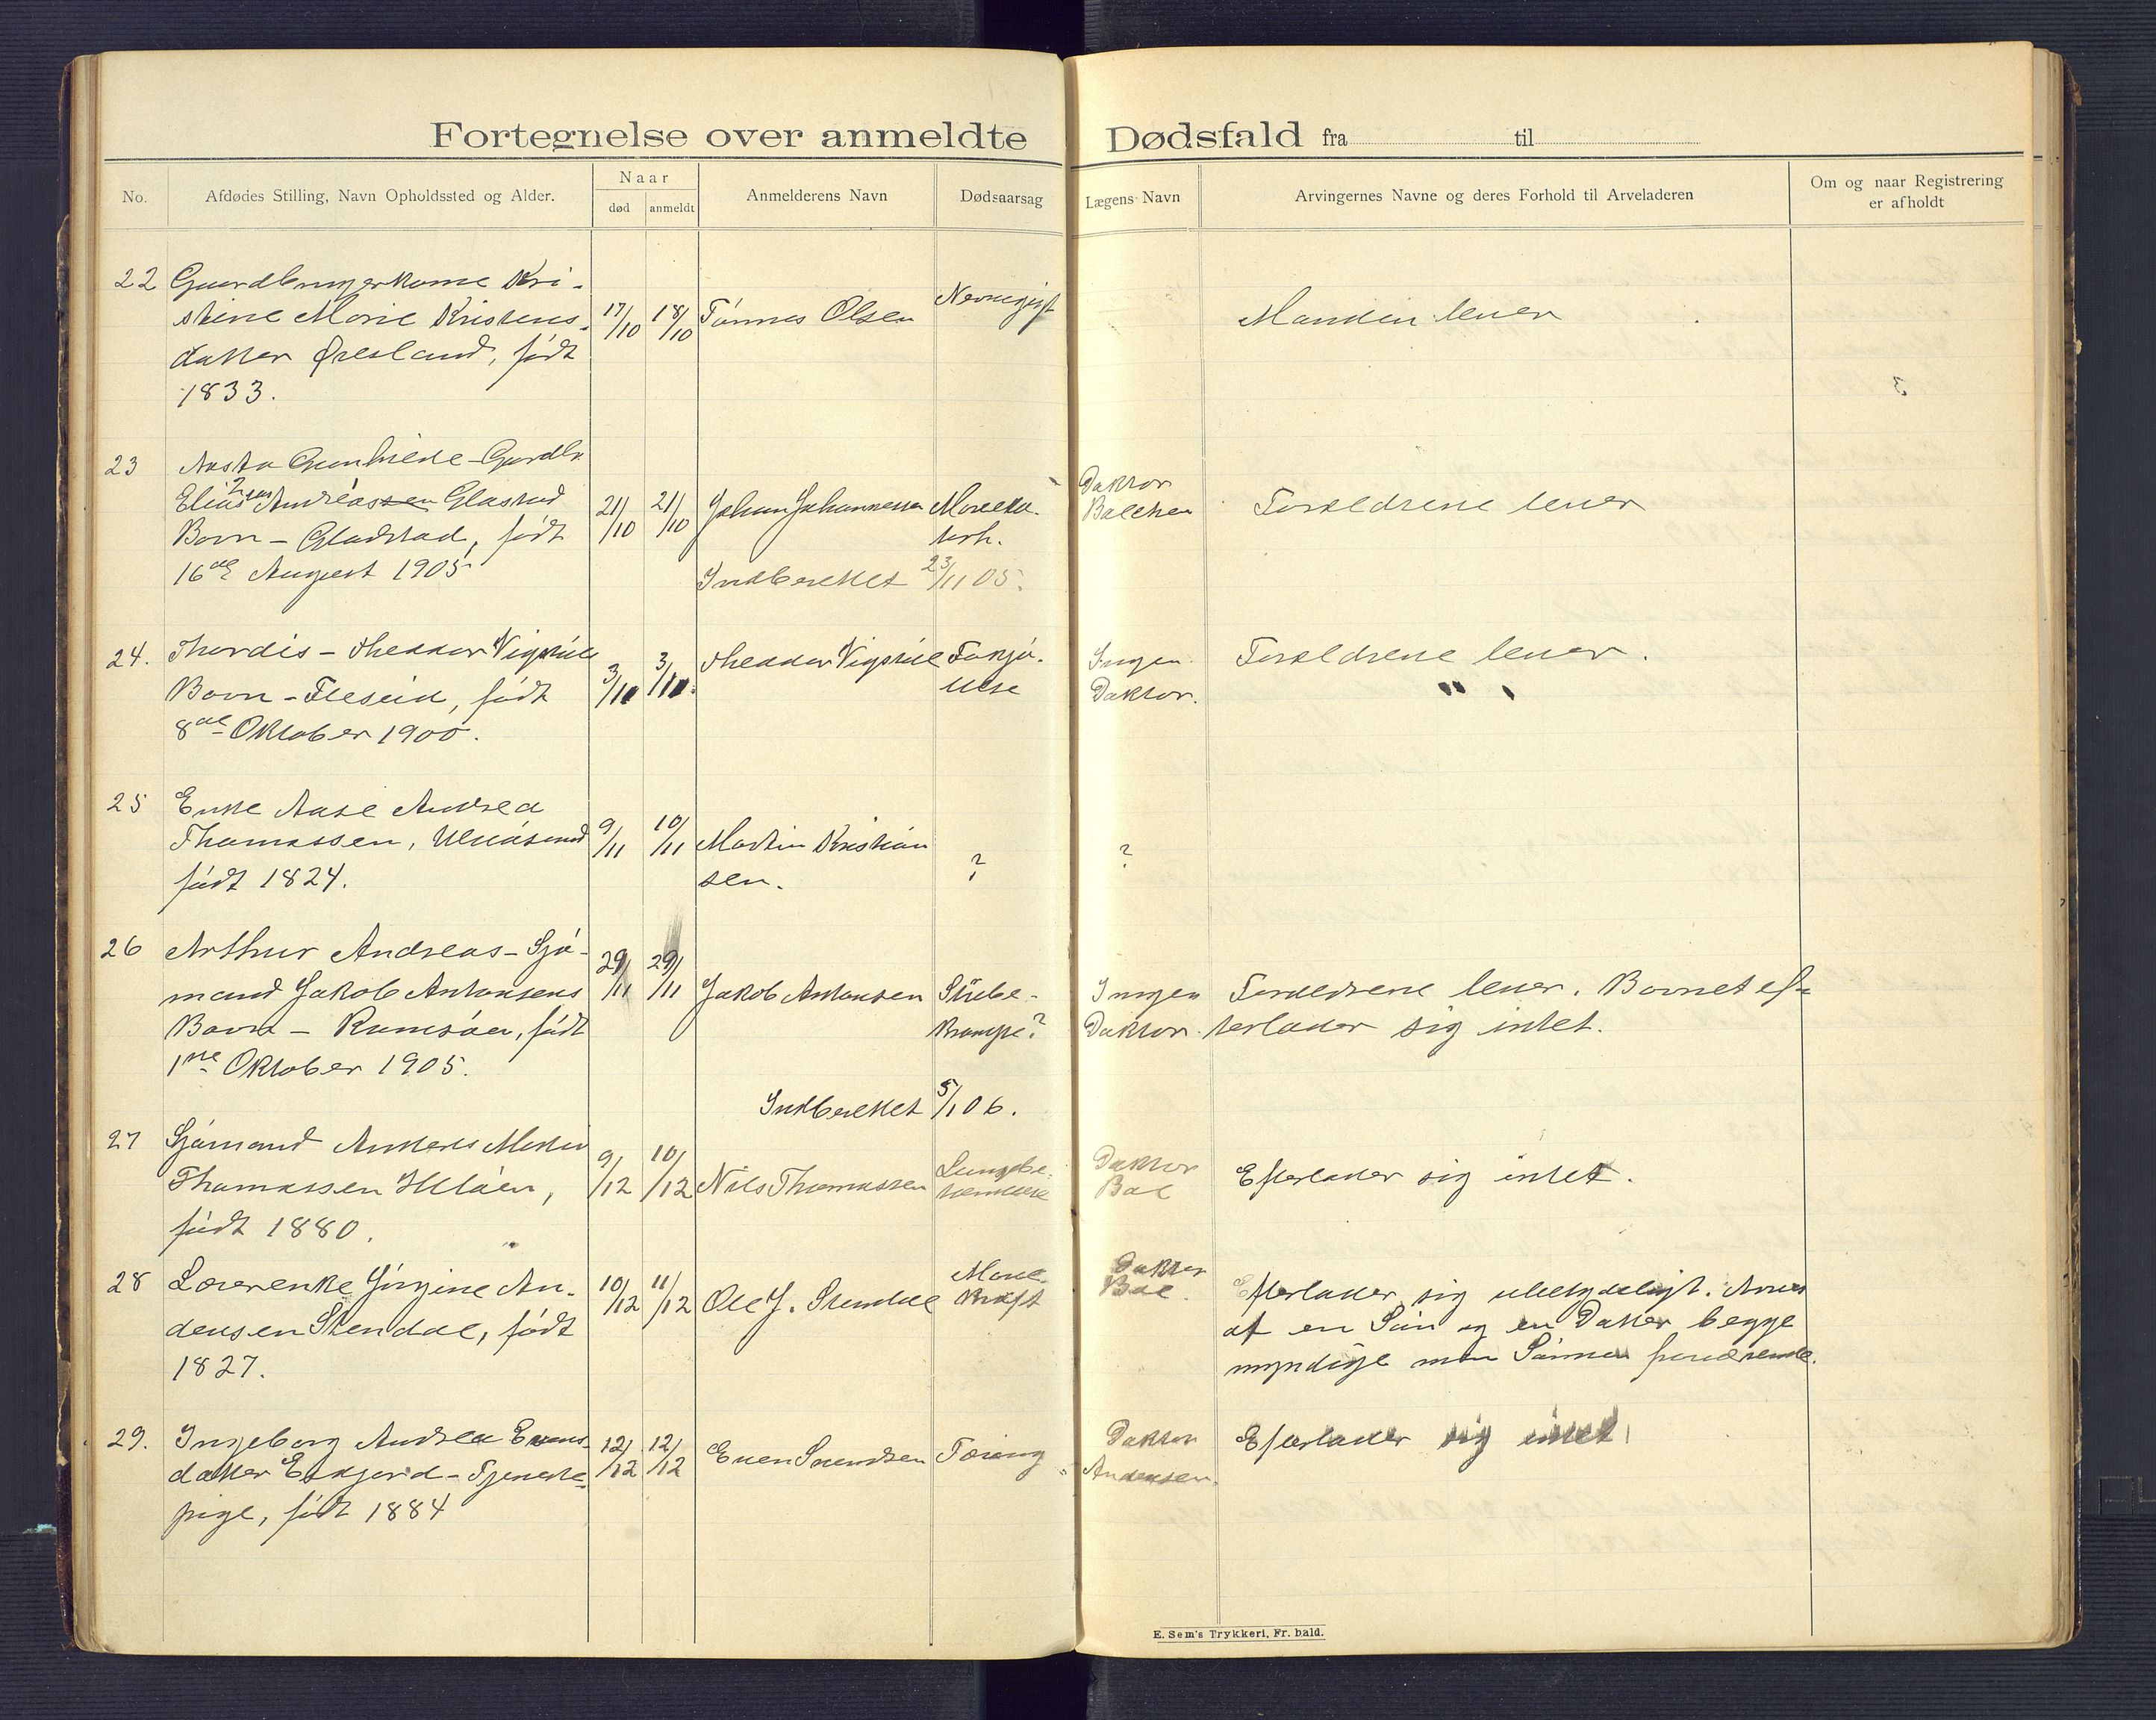 Fortegnelse over anmeldte Dødsfald fra til
No.
Afdødes Stilling, Navn Opholdssted og Alder.
Naar
død
anmeldt
Anmelderens Navn
Dødsaarsag
Lægens Navn
Arvingernes Navne og deres Forhold til Arveladeren
Om og naar Registrering
er afholdt
22 Gaardbrugerkone Kri-
stine Marie Kristens-
datter Øresland, født
1833.
17/10 18/10 Tönnes Olsen
Manden lever
23 Aasta Gunhilde - Gardbr
Elias Andreassen
Barn - Gladstad, født
16de August 1905
21/10 21/10 Johan Johannessen
Doktor
Balchen
Forældrene lever
Indberettet 23/11 05.
24. Thordis - Theodor Vigstøl
Barn - født
8de Oktober 1900.
3/10 3/10 Theodor Vigstøl
Ingen
Doktor.
Forældrene lever.
25 Enke Aase Andrea
Thomassen, Ulvøsund
født 1824.
9/11 10/11 Martin Kristian
sen.
?
?
26 Arthur Andreas - Sjø-
mand Jakob Antonsens
Barn - Ramsøen, født
1ne Oktober 1905.
29/11 29/11 Jakob Antonsen
Strube-
krampe?
Ingen
Doktor.
Forældrene lever. Barnet ef-
terlader sig intet.
Indberettet 5/1 06.
27 Sjømand Anders
Thomassen
født 1880.
9/12 10/12 Nils Thomassen
Lungebe-
tændelse
Doktor
Efterlader sig intet.
28 Lærerenke Jörgine An-
densen Stendal, født
1827.
10/12 11/12 Ole J. Stendal
Doktor
Efterlader sig ubetydeligt. Arves
af en Sön og en Datter begge
myndige men Sönnen fraværende.
29. Ingeborg Andrea Evens-
datter Eskjord - Tjeneste-
pige, født 1884
12/12 12/12 Even Svendsen
Tæring
Doktor
Andersen.
Efterlader sig intet
E. Sem's Trykkeri, Fr. hald.